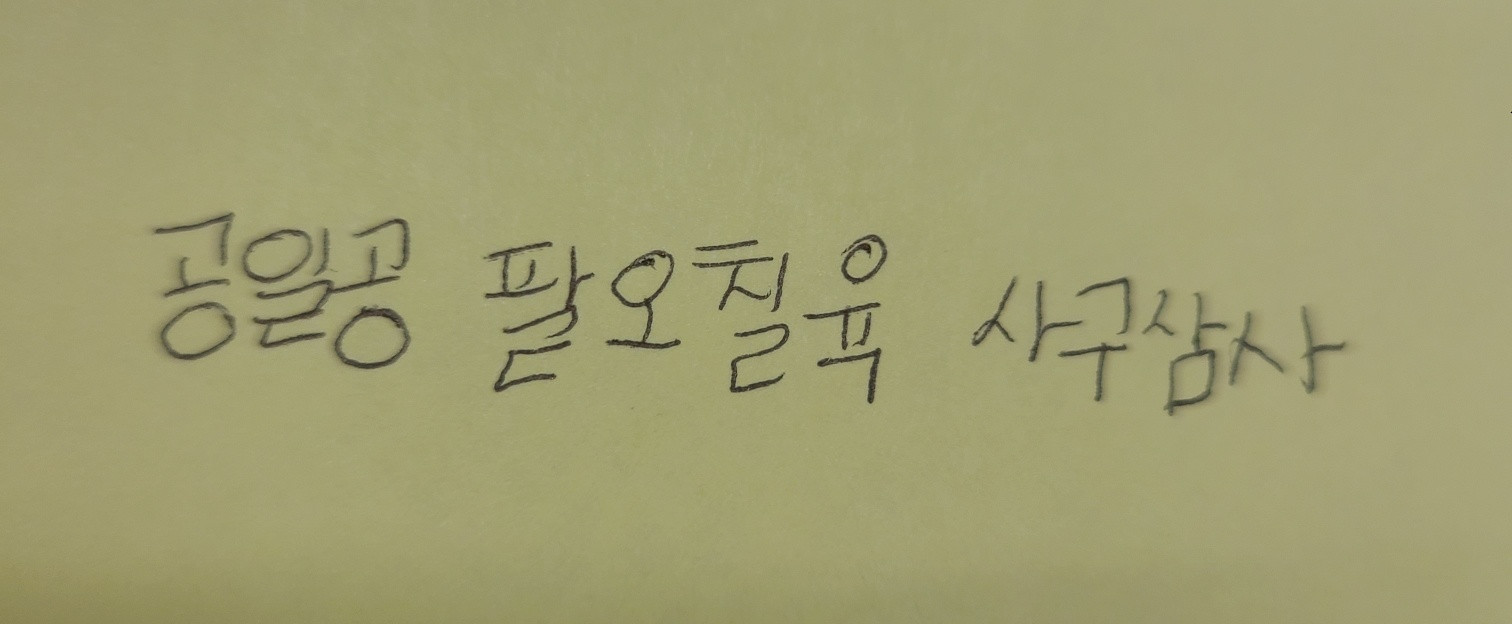 공일공 팔오칠육 사구삼사